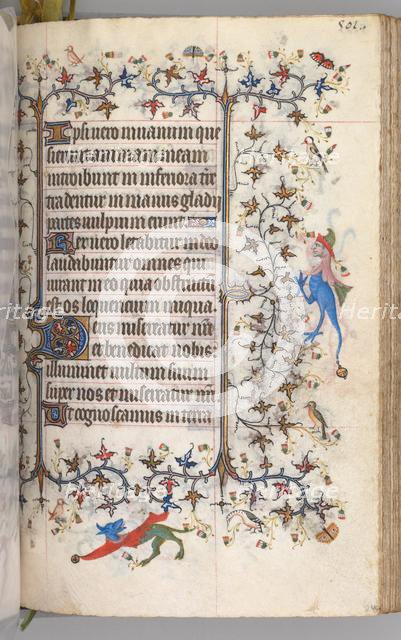 Ipsi vero in vanum que
sierunt animam meam
introibunt in inferiora terre
tradentur in manus gladij
partes vulpium erunt
Rex vero letabitur in deo
laudabuntur omnes qui
iurant in eo quia obstructum
est os loquencium iniqua
Deus misereatur nostri
et benedicat nobis
illuminet vultum suum
super nos et misereatur nostri
Ut cognoscamus in terra
Heritage
Heritage
Heritage